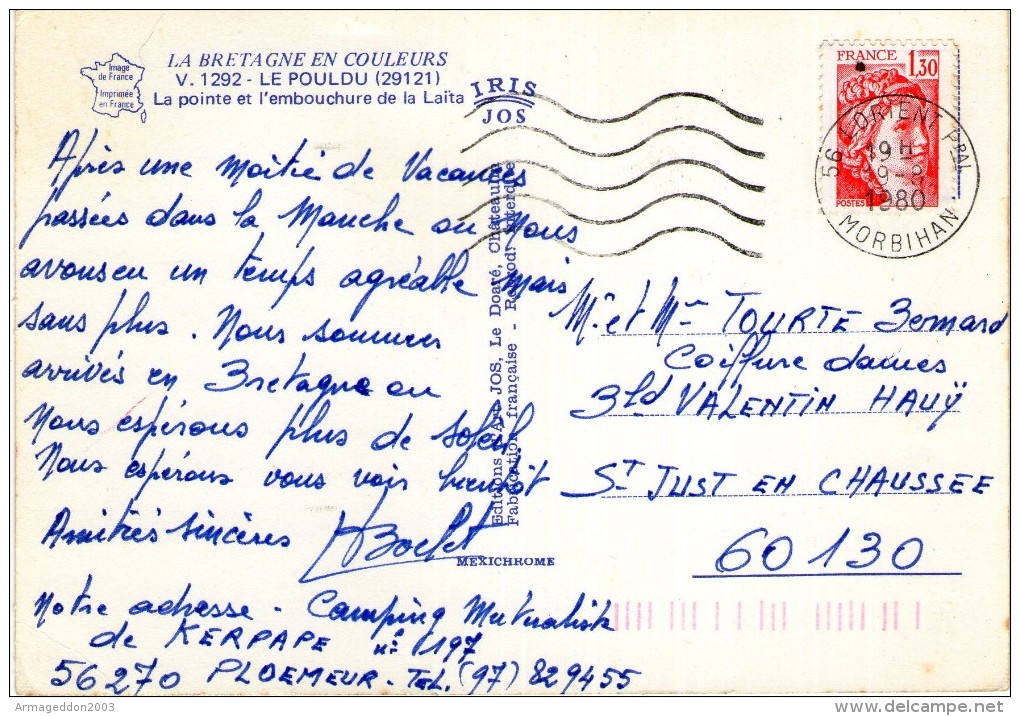 Image
de France
Imprimée
en France
LA BRETAGNE EN COULEURS
V. 1292 - LE POULDU (29121)
La pointe et l'embouchure de la Laïta
IRIS
JOS
Après une moitié de Vacances
passées dans la Manche ou Nous
avons eu un temps agréable mais
sans plus. Nous sommes
arrivés en Bretagne ou
Nous espérons plus de soleil
Nous espérons vous voir bientôt
Amitiés sincères
Notre adresse - Camping Mutualiste
de KERPAPE n° 197
56270 PLOEMEUR - TEL. (97) 829455
Editions d'Art JOS, Le Doaré, Châteaulin
Fabrication française - Reprod. interdite
MEXICHROME
FRANCE
1,30
POSTES
56 LORIENT PPAL
19H
19-8
1980
MORBIHAN
Mr et Mme TOURTE Bernard
Coiffure dames
3 bld VALENTIN HAUŸ
ST JUST EN CHAUSSEE
60130
Armageddon2003
delcampe.net